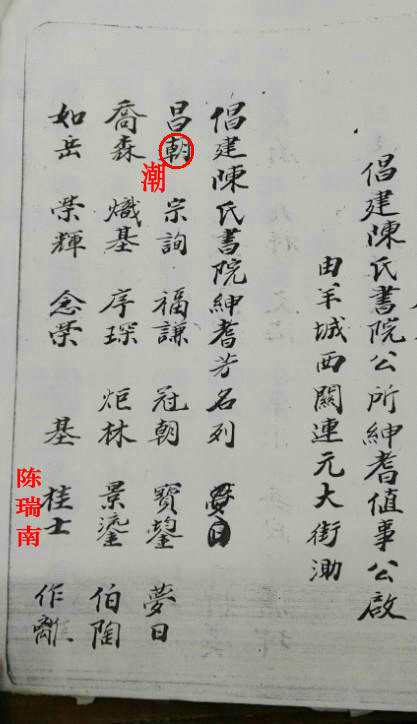 倡建陳氏書院公所紳耆值事公啟
由羊城西關連元大街泐
倡建陳氏書院紳耆芳名列
昌朝 宗詢 福謙 冠朝 寶鋆 夢日
潮
喬森 熾基 序琛 炬林 景鎏 伯陶
如岳 榮輝 念榮 基 桂士 作
陈瑞南